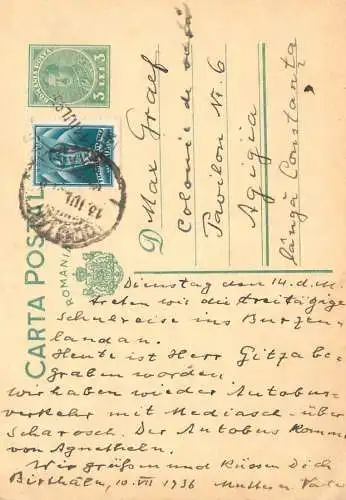 ROMANIA POSTA
3 LEI 3
CARTA POSTALA
ROMANIA
D Max Graef
Colonie de vară
Pavilon Nr. 6
Agigia
lângă Constanța
13 IUL
Dienstag den 14. d. M.
treten wir die dreitägige
Schulreise ins Burzen-
landan.
Heute ist Herr Gitza be-
graben worden.
Wir haben wieder Autobus-
verkehr mit Mediasch über
Scharosch. Der Autobus kommt
von Agnetheln.
Wir grüßen und küssen Dich
Birthälm, 10. VII 1936 Mutter u Vater